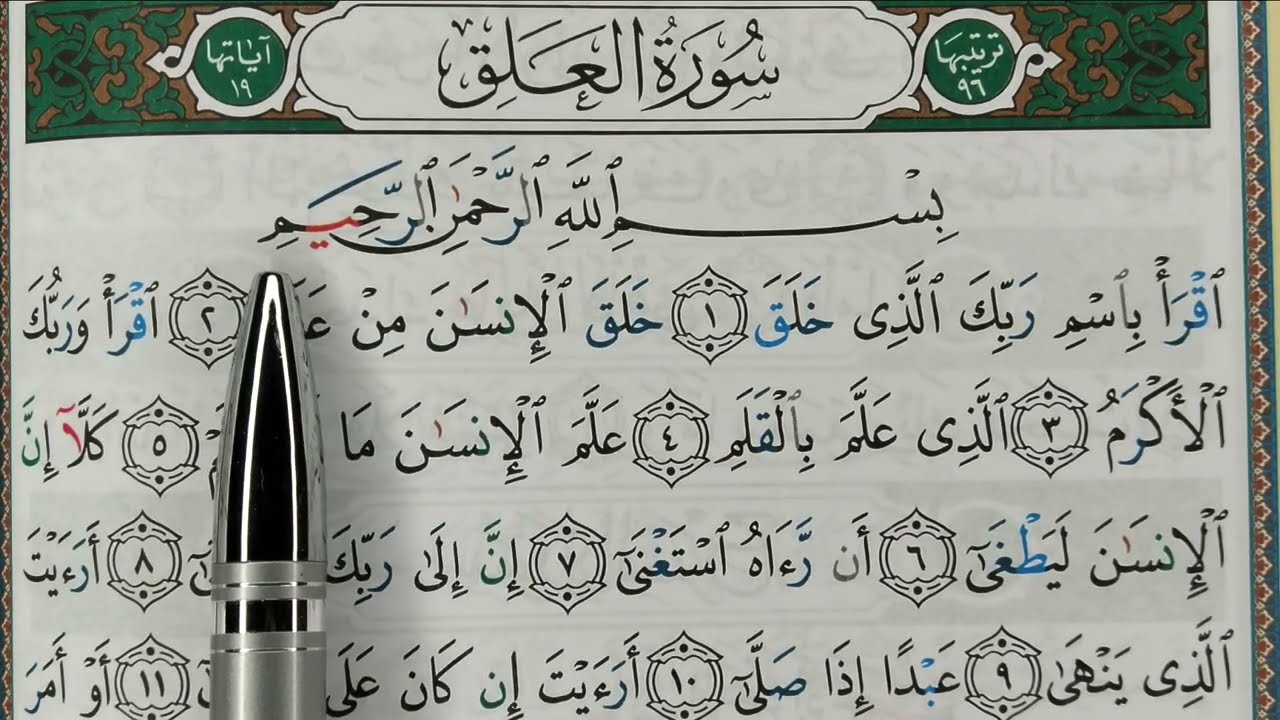 ترتيبها ٩٦
سُورَةُ العَلَقِ
آياتها ١٩
بِسۡمِ ٱللَّهِ ٱلرَّحۡمَٰنِ ٱلرَّحِيمِ
ٱقۡرَأۡ بِٱسۡمِ رَبِّكَ ٱلَّذِى خَلَقَ ١ خَلَقَ ٱلۡإِنسَٰنَ مِنۡ ٢ ٱقۡرَأۡ وَرَبُّكَ
ٱلۡأَكۡرَمُ ٣ ٱلَّذِى عَلَّمَ بِٱلۡقَلَمِ ٤ عَلَّمَ ٱلۡإِنسَٰنَ مَا ٥ كَلَّآ إِنَّ
ٱلۡإِنسَٰنَ لَيَطۡغَىٰٓ ٦ أَن رَّءَاهُ ٱسۡتَغۡنَىٰٓ ٧ إِنَّ إِلَىٰ رَبِّكَ ٨ أَرَءَيۡتَ
ٱلَّذِى يَنۡهَىٰ ٩ عَبۡدًا إِذَا صَلَّىٰٓ ١٠ أَرَءَيۡتَ إِن كَانَ عَلَى ١١ أَوۡ أَمَرَ